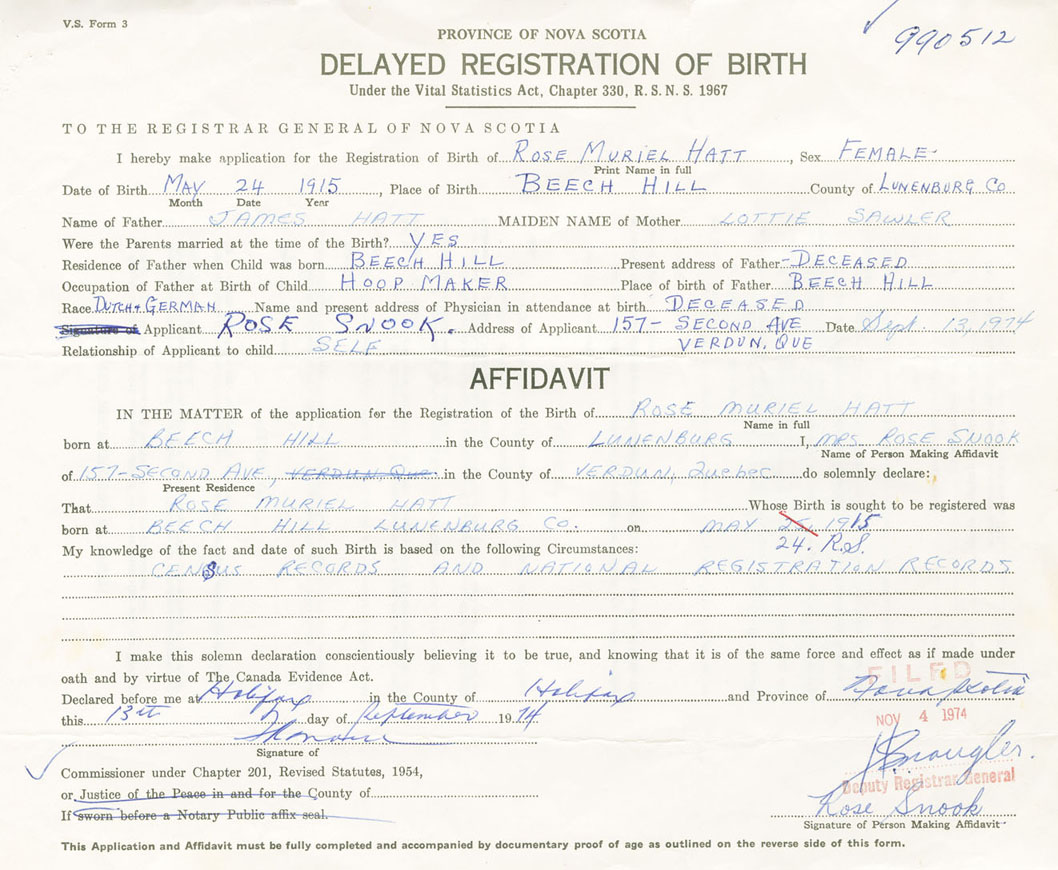 V.S. Form 3
990512
PROVINCE OF NOVA SCOTIA
DELAYED REGISTRATION OF BIRTH
Under the Vital Statistics Act, Chapter 330, R.S.N.S. 1967
TO THE REGISTRAR GENERAL OF NOVA SCOTIA
I hereby make application for the Registration of Birth of ROSE MURIEL HATT, Sex FEMALE
Print Name in full
Date of Birth MAY 24 1915, Place of Birth BEECH HILL County of LUNENBURG CO
Month Date Year
Name of Father JAMES HATT MAIDEN NAME of Mother LOTTIE SAWLER
Were the Parents married at the time of the Birth? YES
Residence of Father when Child was born BEECH HILL Present address of Father DECEASED
Occupation of Father at Birth of Child HOOP MAKER Place of birth of Father BEECH HILL
Race DUTCH & GERMAN Name and present address of Physician in attendance at birth DECEASED
Signature of Applicant ROSE SNOOK. Address of Applicant 157- SECOND AVE Date Sept. 13, 1974
Relationship of Applicant to child SELF VERDUN, QUE
AFFIDAVIT
IN THE MATTER of the application for the Registration of the Birth of ROSE MURIEL HATT
Name in full
born at BEECH HILL in the County of LUNENBURG I, MRS ROSE SNOOK
Name of Person Making Affidavit
of 157-SECOND AVE, VERDUN QUE in the County of VERDUN, Quebec do solemnly declare:
Present Residence
That ROSE MURIEL HATT Whose Birth is sought to be registered was
born at BEECH HILL LUNENBURG CO. on MAY 25, 1915
24. R.S.
My knowledge of the fact and date of such Birth is based on the following Circumstances:
CENSUS RECORDS AND NATIONAL REGISTRATION RECORDS
I make this solemn declaration conscientiously believing it to be true, and knowing that it is of the same force and effect as if made under
oath and by virtue of The Canada Evidence Act.
FILED
Declared before me at Halifax in the County of Halifax and Province of Nova Scotia
this 13th day of September 1974
NOV 4 1974
Signature of
Commissioner under Chapter 201, Revised Statutes, 1954,
or Justice of the Peace in and for the County of
Deputy Registrar General
If sworn before a Notary Public affix seal.
Rose Snook
Signature of Person Making Affidavit
This Application and Affidavit must be fully completed and accompanied by documentary proof of age as outlined on the reverse side of this form.